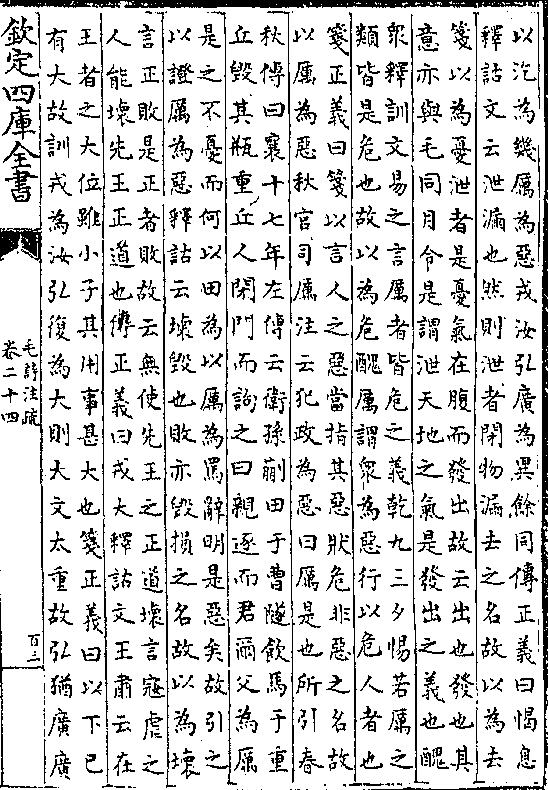 以汔為幾厲為惡戎汝弘廣為異餘同傳正義曰愒息
釋詁文云泄漏也然則泄者閉物漏去之名故以為去
箋以為憂泄者是憂氣在腹而發出故云出也發也其
意亦與毛同月令是謂泄天地之氣是發出之義也醜
衆釋訓文易之言厲者皆危之義乾九三夕惕若厲之
類皆是危也故以為危醜厲謂衆為惡行以危人者也
箋正義曰箋以言人之惡當指其惡狀危非惡之名故
以厲為惡秋官司厲注云犯政為惡曰厲是也所引春
秋傳曰襄十七年左傳云衛孫蒯田于曹隧飲馬于重
丘毀其瓶重丘人閉門而詢之曰親逐而君爾父為厲
是之不憂而何以田為以厲為罵辭明是惡矣故引之
以證厲為惡釋詁云壊毀也敗亦毀損之名故以為壊
言正敗是正者敗故云無使先王之正道壊言寇虐之
人能壊先王正道也傳正義曰戎大釋詁文王肅云在
王者之大位雖小子其用事甚大也箋正義曰以下已
有大故訓戎為汝弘復為大則大文太重故弘猶廣廣
欽定四庫全書
毛詩注疏
卷二十四
百三